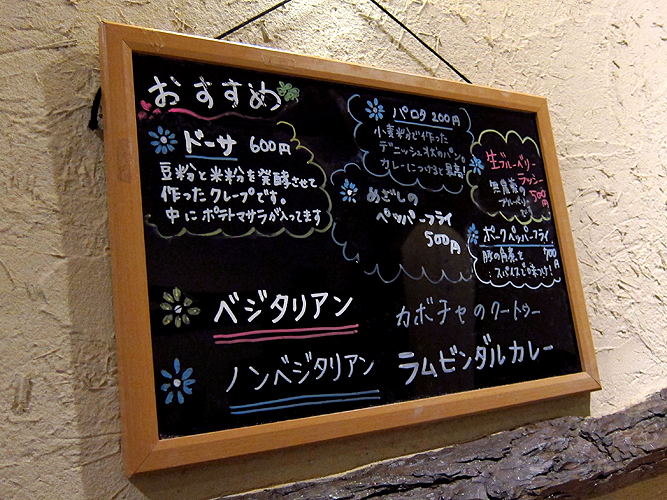 おすすめ
ドーサ 600円
豆粉と米粉を発酵させて
作ったクレープです。
中にポテトマサラが入ってます
パロタ 200円
小麦粉で作った
デニッシュ状のパン。
カレーにつけると最高!
めざしの
ペッパーフライ
500円
生ブルーベリー
ラッシー
500円
無農薬の
ブルーベリー
です
ポークペッパーフライ
豚の角煮を 700円
スパイスで味つけ!
ベジタリアン カボチャのクートゥー
ノンベジタリアン ラムビンダルカレー